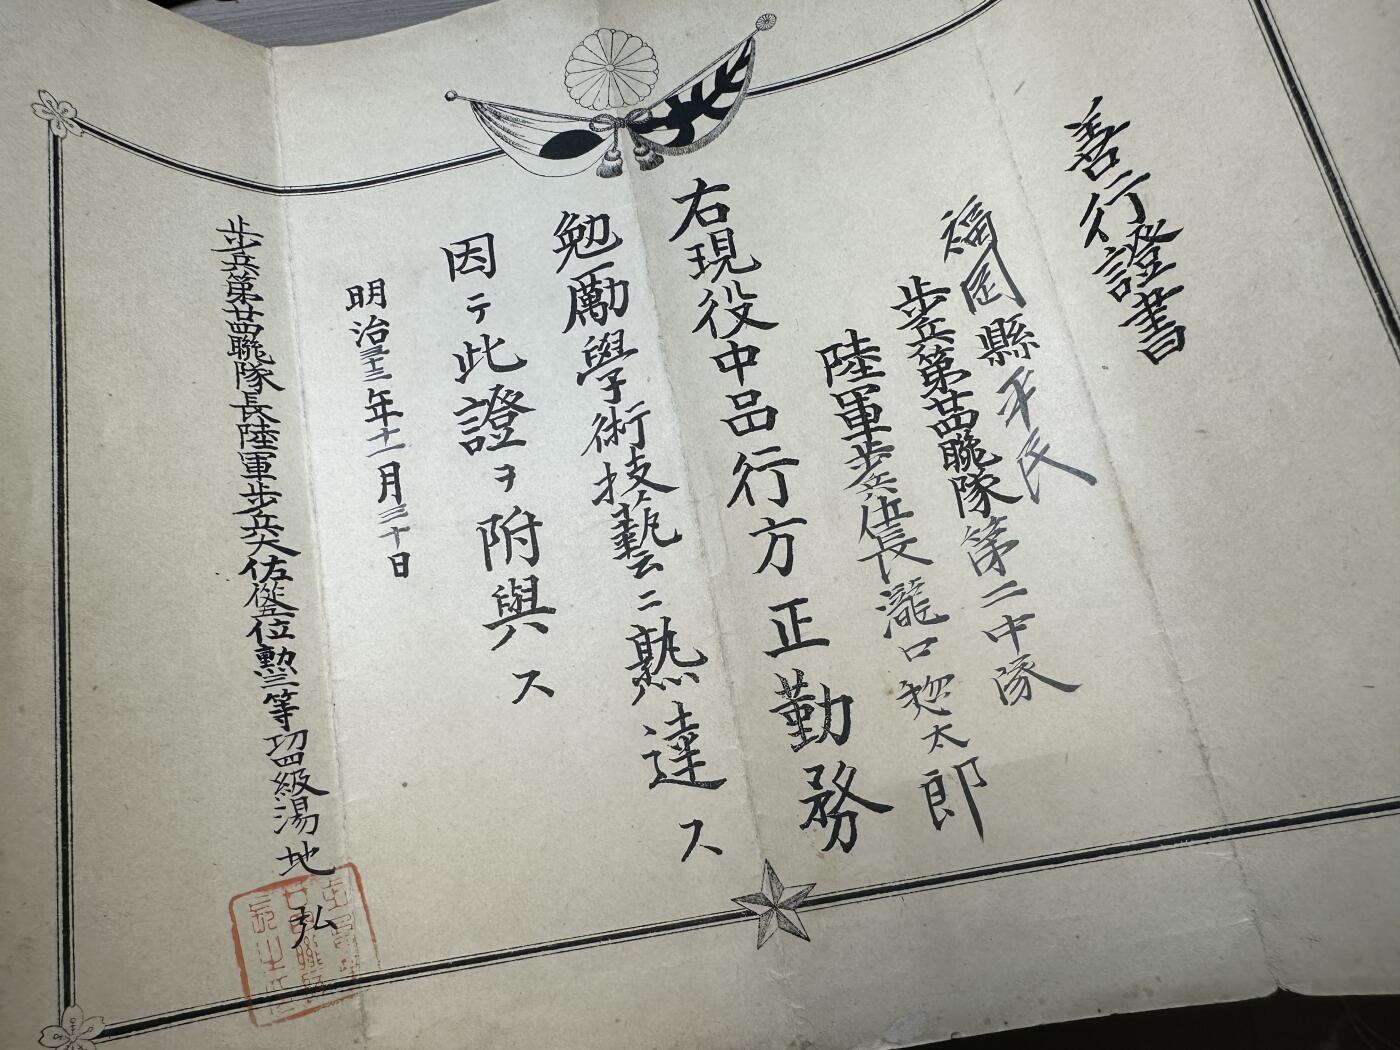 善行證書
福岡縣平民
歩兵第廿四聯隊第二中隊
陸軍歩兵伍長瀧口惣太郎
右現役中品行方正勤務
勉勵學術技藝ニ熟達ス
因テ此證ヲ附與ス
明治三十三年十一月三十日
歩兵第廿四聯隊長陸軍歩兵大佐從五位勲三等功四級湯地弘